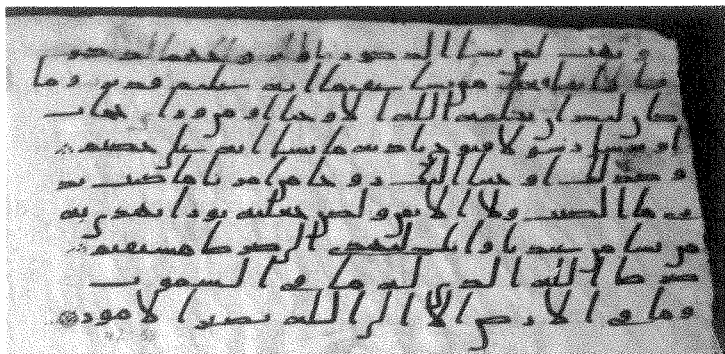 ويهب لمن يشا الذكور او يزوجهم ذكر
انا وانثا ويجعل من يشا عقيما انه عليم قدير وما
كان لبشر ان يكلمه الله الا وحيا او من وراى حجاب
او يرسل رسولا فيوحى باذنه ما يشا انه على حكيم
وكذلك اوحينا اليك روحا من امرنا ما كنت تد
رى ما الكتب ولا الايمن ولكن جعلنه نورا نهدى به
من نشا من عبدنا وانك لتهدى الى صرط مستقيم
صرط الله الذى له ما فى السموت
وما فى الارض الا الى الله تصير الامور